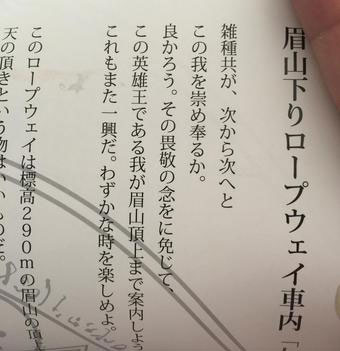 眉山下りロープウェイ車内「
雑種共が、次から次へと
この我を崇め奉るか。
良かろう。その畏敬の念をに免じて、
この英雄王である我が眉山頂上まで案内しよう
これもまた一興だ。わずかな時を楽しめよ。
このロープウェイは標高290mの眉山の頂上
天の頂きという物はいいものだ。